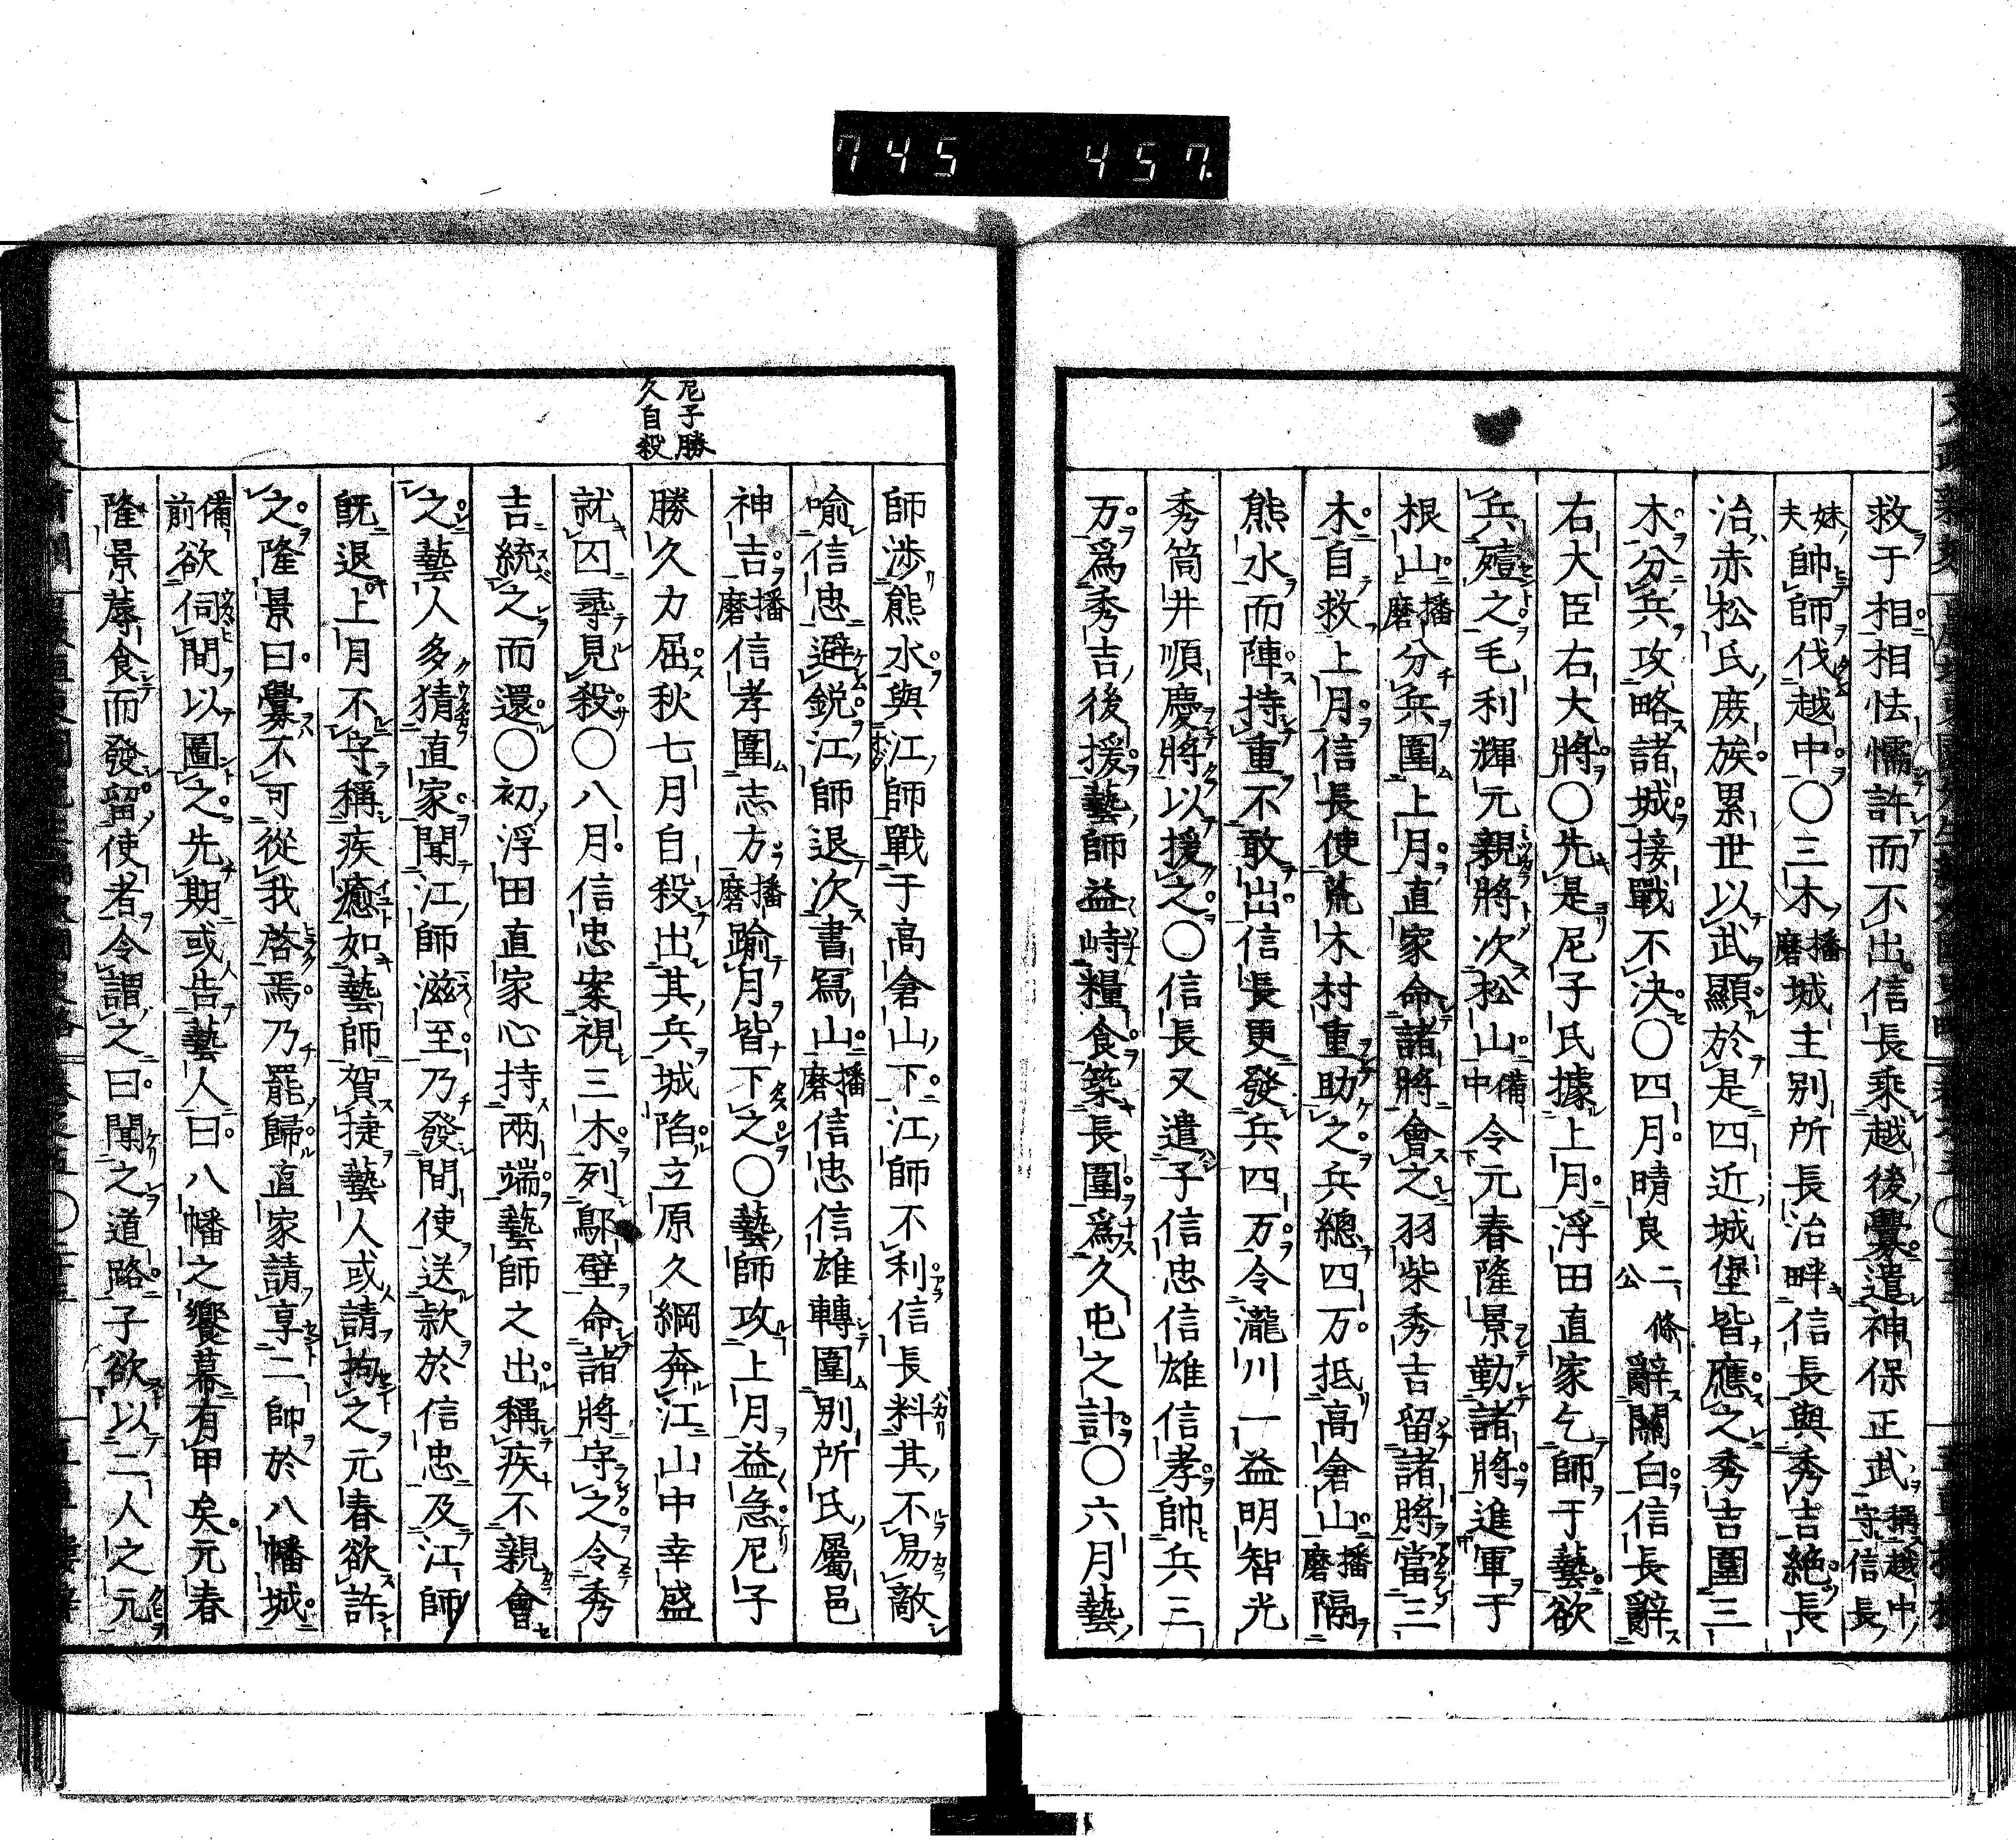 745 457.
救于相相怯懦許而不出信長乘越後釁遣神保正武稱越中守信長
妹夫帥師伐越中○三木播磨城主別所長治畔信長與秀吉絶長
治赤松氏庶族累世以武顯於是四近城堡皆應之秀吉圍三
木分兵攻略諸城接戰不決○四月晴良二條公辭關白信長辭
右大臣右大將○先是尼子氏據上月浮田直家乞師于藝欲
兵殪之毛利輝元親將次松山備中令元春隆景勤諸將進軍于
根山播磨分兵圍上月直家命諸將會之羽柴秀吉留諸將當三
木自救上月信長使荒木村重助之兵總四万抵高倉山播磨隔
熊水而陣持重不敢出信長更發兵四万令瀧川一益明智光
秀筒井順慶將以援之○信長又遣子信忠信雄信孝帥兵三
万爲秀吉後援藝師益峙糧食築長圍爲久屯之計○六月藝
師渉熊水與江師戰于高倉山下江師不利信長料其不易敵
喩信忠避鋭江師退次書冩山播磨信忠信雄轉圍別所氏屬邑
神吉播磨信孝圍志方播磨踰月皆下之○藝師攻上月益急尼子
尼子勝久自殺
勝久力屈秋七月自殺出其兵城陷立原久綱奔江山中幸盛
就囚尋見殺○八月信忠案視三木列鄣壁命諸將守之令秀
吉統之而還○初浮田直家心持兩端藝師之出稱疾不親會
之藝人多猜直家聞江師滋至乃發間使送款於信忠及江師
旣退上月不守稱疾癒如藝師賀捷藝人或請拘之元春欲許
之隆景曰釁不可從我啓焉乃罷歸直家請享二帥於八幡城
備前欲伺間以圖之先期或告藝人曰八幡之饗幕有甲矣元春
隆景蓐食而發留使者令謂之曰聞之道路子欲以二人之元